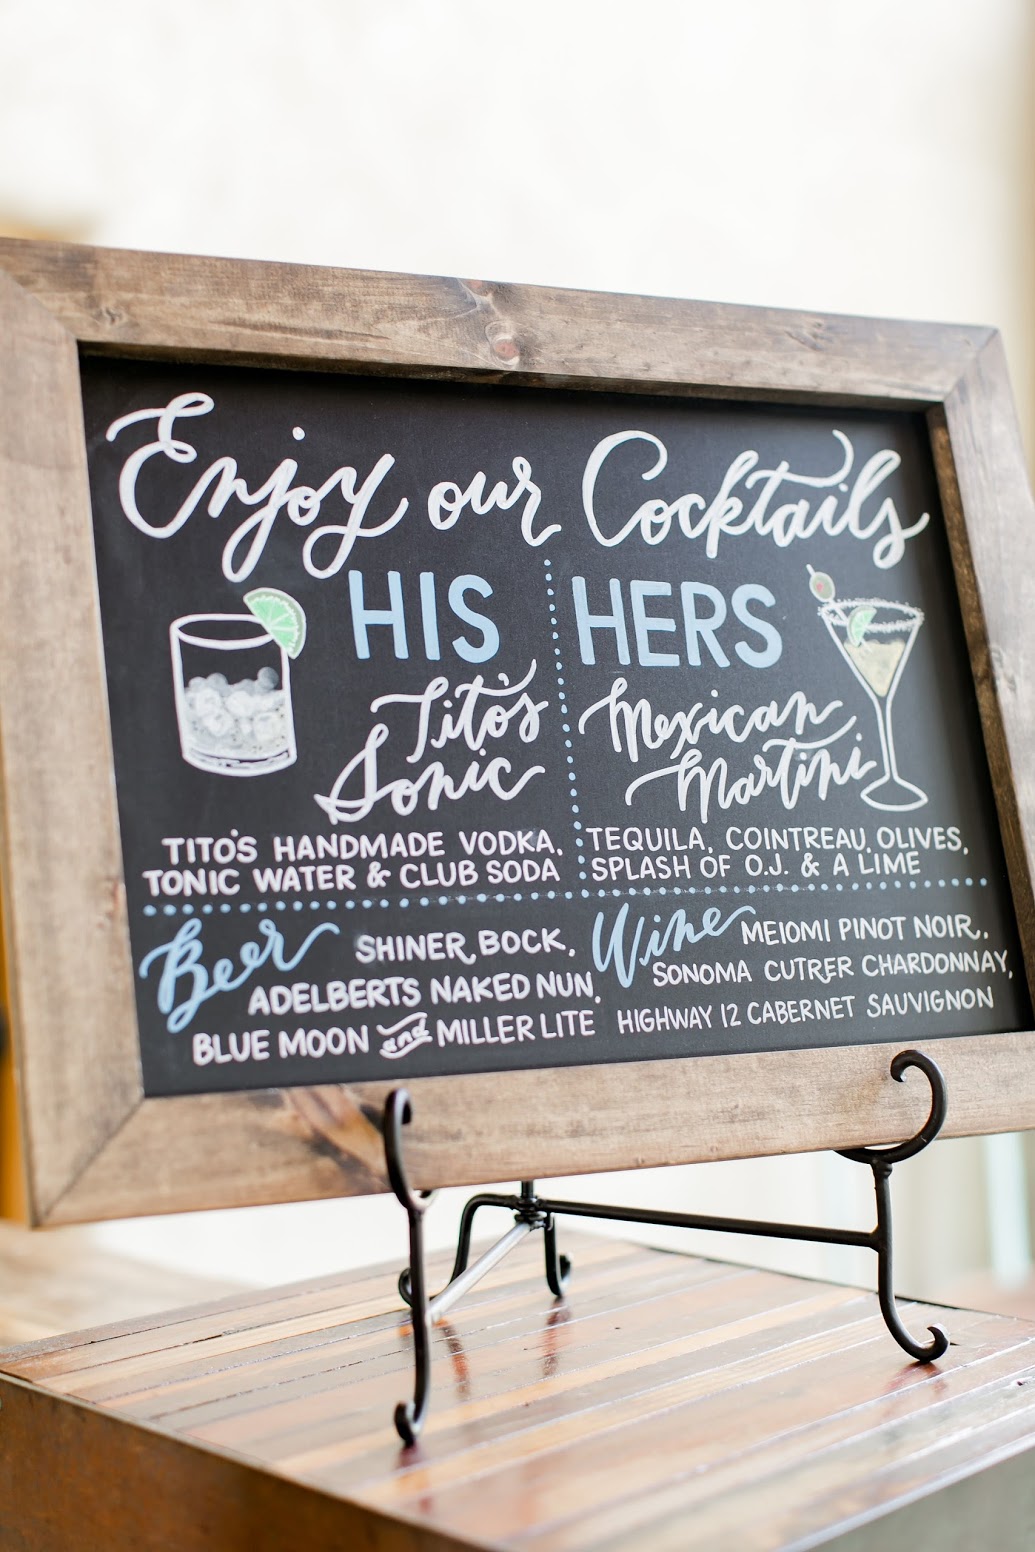 Enjoy our Cocktails
HIS
Tito's
Sonic
TITO'S HANDMADE VODKA,
TONIC WATER & CLUB SODA
HERS
Mexican
Martini
TEQUILA, COINTREAU, OLIVES,
SPLASH OF O.J. & A LIME
Beer SHINER BOCK,
ADELBERTS NAKED NUN,
BLUE MOON and MILLER LITE
Wine MEIOMI PINOT NOIR,
SONOMA CUTRER CHARDONNAY,
HIGHWAY 12 CABERNET SAUVIGNON